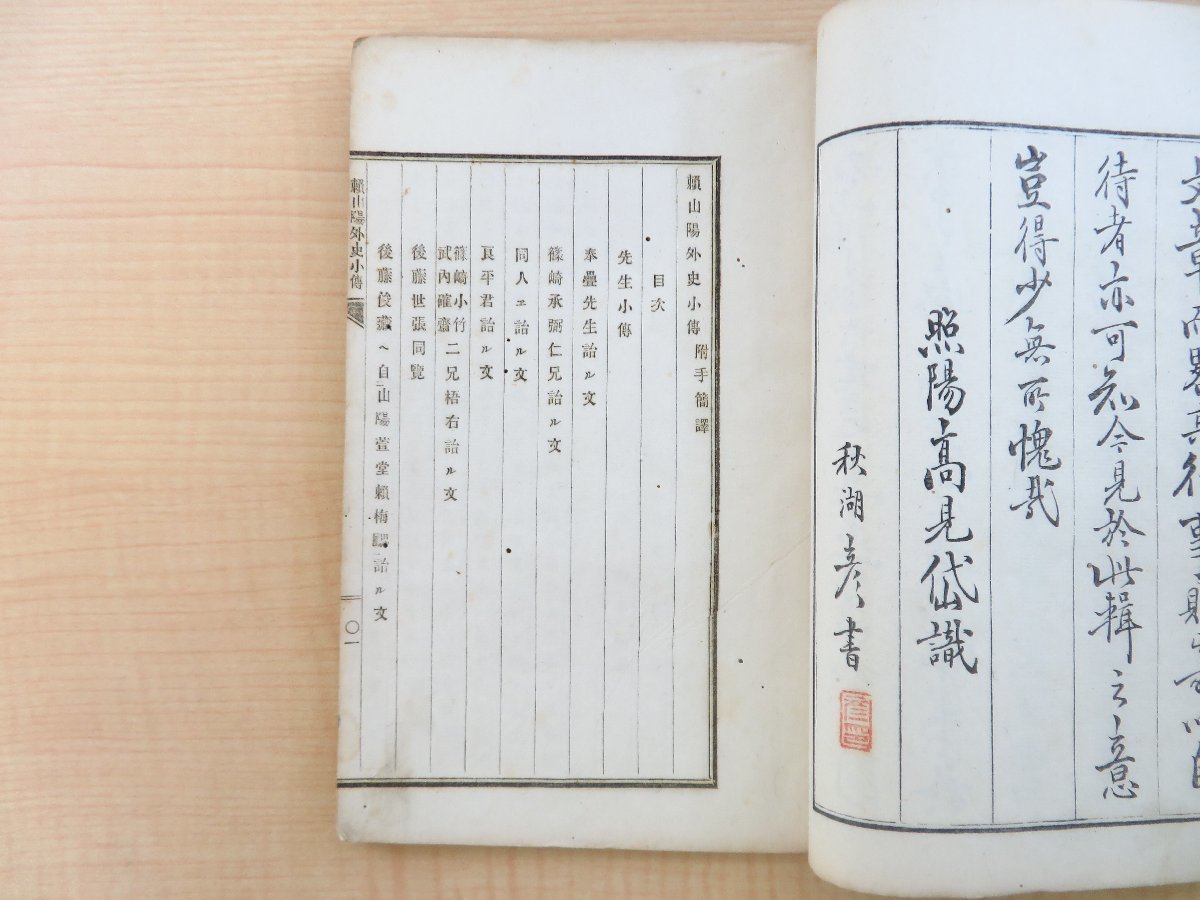 待者亦可知今見於此輯之意
豈得少無所愧哉
照陽高見岱識
秋湖彦書
賴山陽外史小傳附手簡譯
目次
先生小傳
奉疊先生詒ル文
篠崎承弼仁兄詒ル文
同人ヱ詒ル文
良平君詒ル文
篠崎小竹
武內確齋二兄梧右詒ル文
後藤世張同覽
後藤俊藏ヘ自山陽萱堂賴梅詒ル文
賴山陽外史小傳
〇一